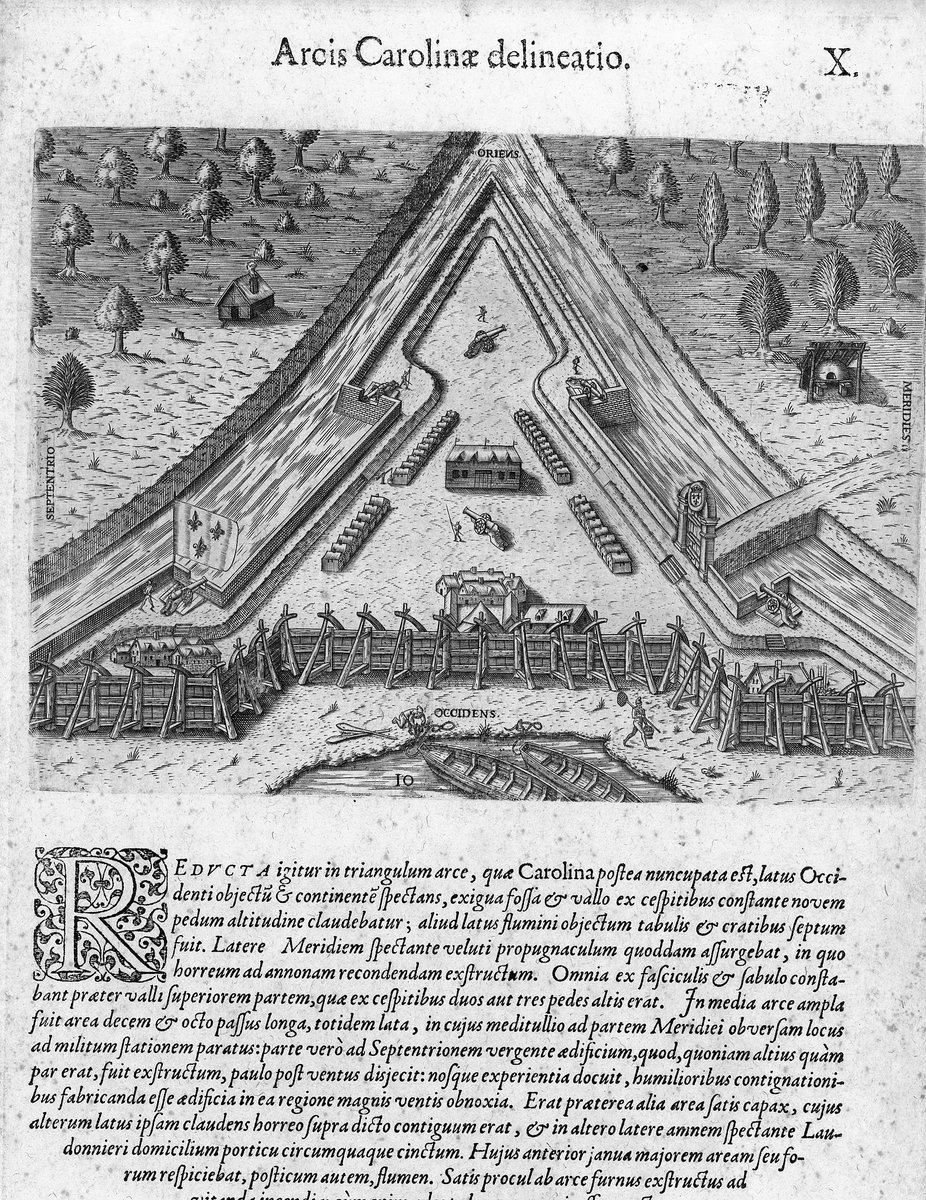 Arcis Carolinæ delineatio.
X.
ORIENS.
MERIDIES.
SEPTENTRIO
OCCIDENS.
10
REDVCTA igitur in triangulum arce, quæ Carolina postea nuncupata est, latus Occi-
denti objectũ & continentẽ spectans, exigua fossa & vallo ex cespitibus constante novem
pedum altitudine claudebatur; aliud latus flumini objectum tabulis & cratibus septum
fuit. Latere Meridiem spectante veluti propugnaculum quoddam assurgebat, in quo
horreum ad annonam recondendam exstructum. Omnia ex fasciculis & sabulo consta-
bant præter valli superiorem partem, quæ ex cespitibus duos aut tres pedes altis erat. In media arce ampla
fuit area decem & octo passus longa, totidem lata, in cujus meditullio ad partem Meridiei obversam locus
ad militum stationem paratus: parte verò ad Septentrionem vergente ædificium, quod, quoniam altius quàm
par erat, fuit exstructum, paulo post ventus disjecit: nosque experientia docuit, humilioribus contignationi-
bus fabricanda esse ædificia in ea regione magnis ventis obnoxia. Erat præterea alia area satis capax, cujus
alterum latus ipsam claudens horreo supra dicto contiguum erat, & in altero latere amnem spectante Lau-
donnieri domicilium porticu circumquaque cinctum. Hujus anterior janua majorem aream seu fo-
rum respiciebat, posticum autem, flumen. Satis procul ab arce furnus exstructus ad